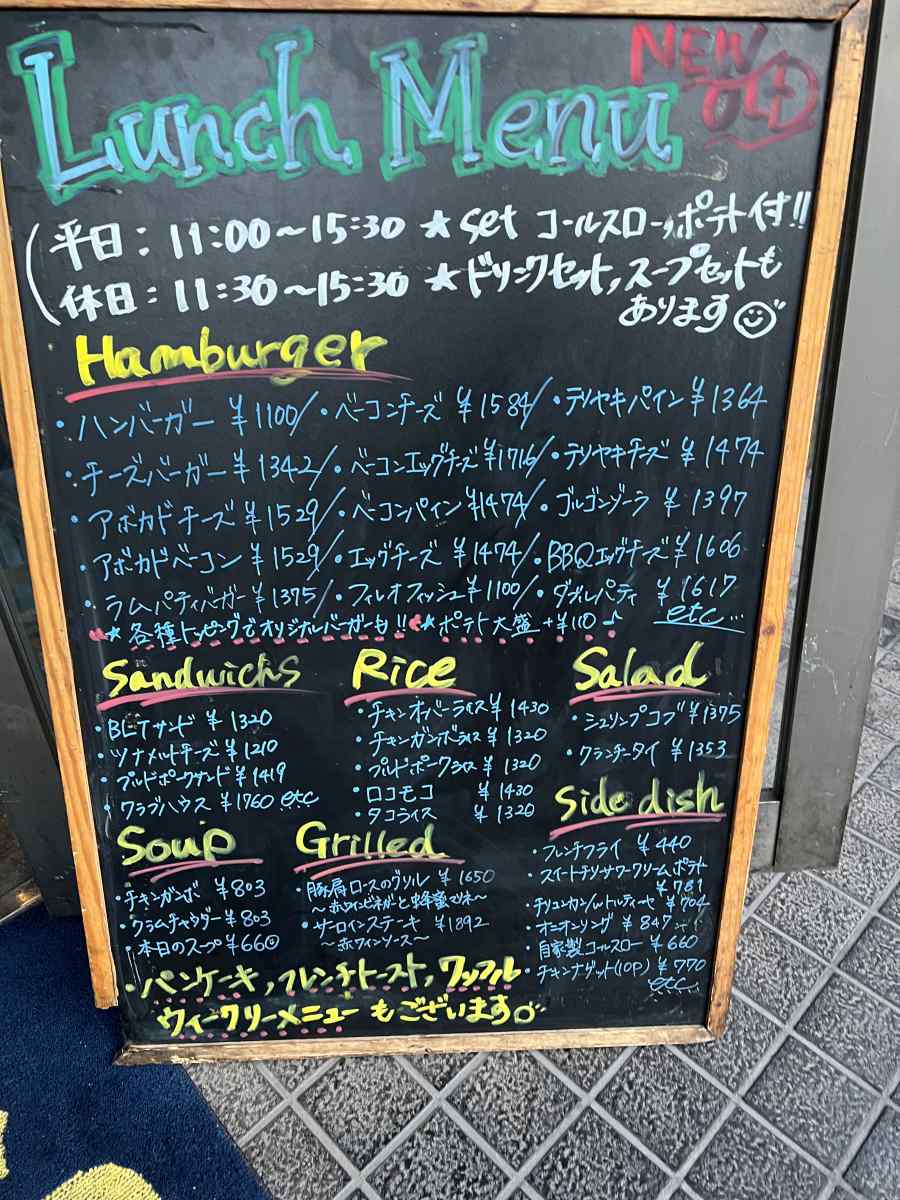 Lunch Menu NEW OLD
平日: 11:00~15:30 ★ set コールスロー,ポテト付!!
休日: 11:30~15:30 ★ドリンクセット,スープセットも
あります
Hamburger
・ハンバーガー ¥1100/・ベーコンチーズ ¥1584/・テリヤキパイン ¥1364
・チーズバーガー ¥1342/・ベーコンエッグチーズ ¥1716/・テリヤキチーズ ¥1474
・アボカドチーズ ¥1529/・ベーコンパイン ¥1474/・ゴルゴンゾーラ ¥1397
・アボカドベーコン ¥1529/・エッグチーズ ¥1474/・BBQエッグチーズ ¥1606
・ラムパティバーガー ¥1375/・フィレオフィッシュ ¥1100/・ダブルパティ ¥1617
etc...
★各種トッピングでオリジナルバーガーも!! ★ポテト大盛 +¥110♪
Sandwichs
・BLTサンド ¥1320
・ツナメルトチーズ ¥1210
・プルドポークサンド ¥1419
・クラブハウス ¥1760 etc
Rice
・チキンオーバーライス ¥1430
・チキンガンボライス ¥1320
・プルドポークライス ¥1320
・ロコモコ ¥1430
・タコライス ¥1320
Salad
・シュリンプコブ ¥1375
・クランチータイ ¥1353
Soup
・チキンガンボ ¥803
・クラムチャウダー ¥803
・本日のスープ ¥660
Grilled
・豚肩ロースのグリル ¥1650
~赤ワインビネガーと蜂蜜マリネ~
・サーロインステーキ ¥1892
~赤ワインソース~
Side dish
・フレンチフライ ¥440
・スイートチリサワークリームポテト
¥781
・チリコンカン/w トルティーヤ ¥704
・オニオンリング ¥847
・自家製コールスロー ¥660
・チキンナゲット(10P) ¥770
etc
・パンケーキ,フレンチトースト,ワッフル
ウィークリーメニューもございます